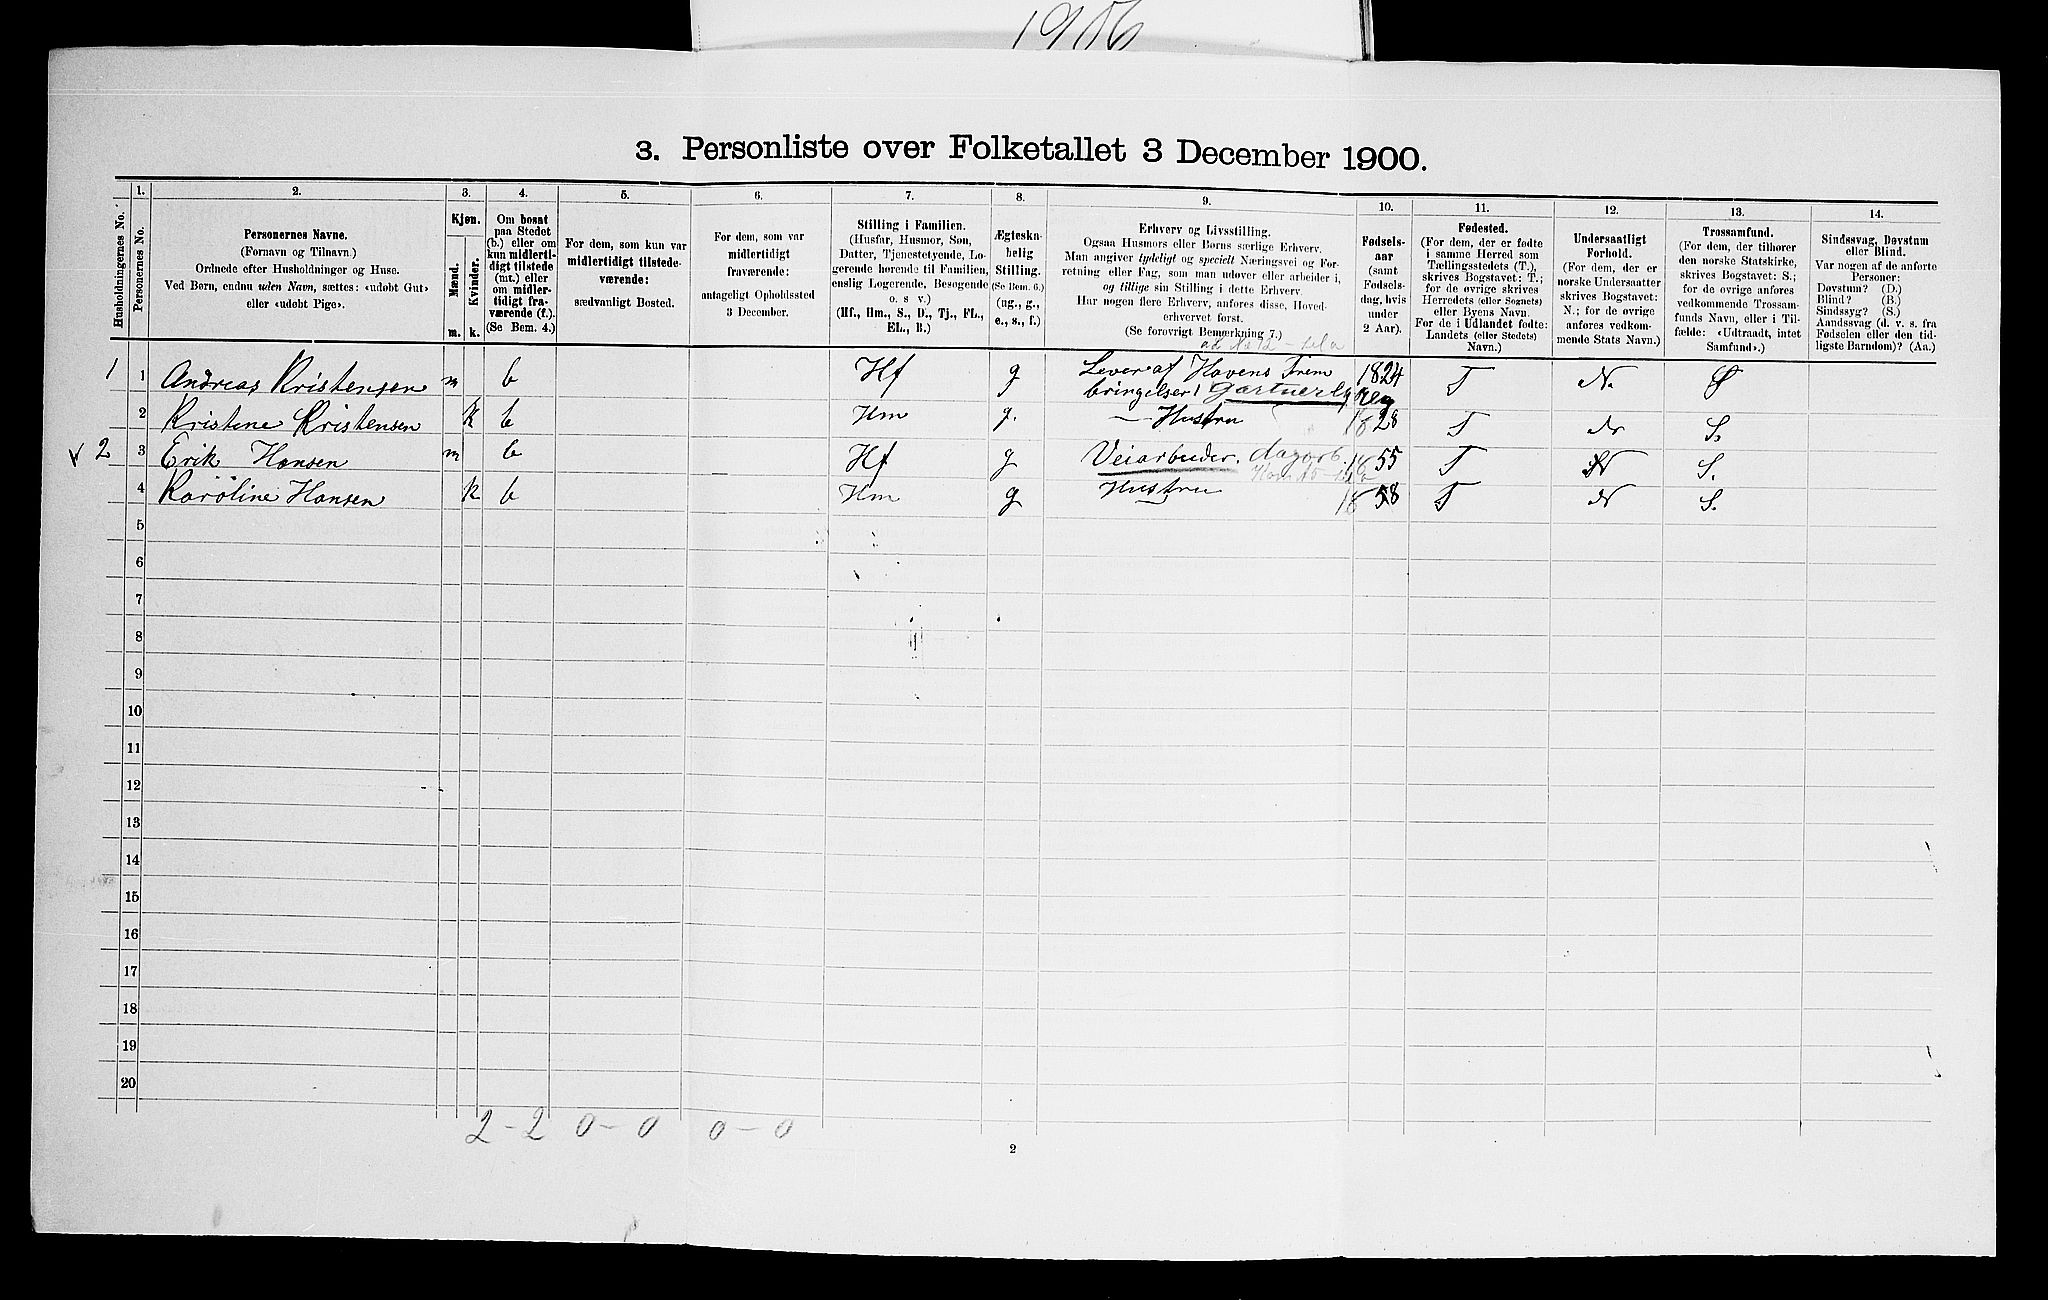 1906
3. Personliste over Folketallet 3 December 1900.
Husholdningernes No.
1.
Personernes No.
2.
Personernes Navne.
(Fornavn og Tilnavn.)
Ordnede efter Husholdninger og Huse.
Ved Børn, endnu uden Navn, sættes: «udøbt Gut»
eller «udøbt Pige».
3.
Kjøn.
Mænd.
Kvinder.
m.
k.
4.
Om bosat
paa Stedet
(b.) eller om
kun midlerti-
digt tilstede
(mt.) eller
om midler-
tidigt fra-
værende (f.).
(Se Bem. 4.)
5.
For dem, som kun var
midlertidigt tilstede-
værende:
sædvanligt Bosted.
6.
For dem, som var
midlertidigt
fraværende:
antageligt Opholdssted
3 December.
7.
Stilling i Familien.
(Husfar, Husmor, Søn,
Datter, Tjenestetyende, Lo-
gerende hørende til Familien,
enslig Logerende, Besøgende
o. s v.)
(Hf., Hm., S., D., Tj., FL.,
EL., B.)
8.
Ægteska-
belig
Stilling.
(Se Bem. 6.)
(ug., g.,
e., s., f.)
9.
Erhverv og Livsstilling.
Ogsaa Husmors eller Børns særlige Erhverv.
Man angiver tydeligt og specielt Næringsvei og For-
retning eller Fag, som man udøver eller arbeider i,
og tillige sin Stilling i dette Erhverv.
Har nogen flere Erhverv, anføres disse, Hoved-
erhvervet først.
(Se forøvrigt Bemærkning 7.)
10.
Fødsels-
aar
(samt
Fødsels-
dag, hvis
under
2 Aar).
11.
Fødested.
(For dem, der er fødte
i samme Herred som
Tællingsstedets (T.),
skrives Bogstavet: T.;
for de øvrige skrives
Herredets (eller Sognets)
eller Byens Navn.
For de i Udlandet fødte:
Landets (eller Stedets)
Navn.)
12.
Undersaatligt
Forhold.
(For dem, der er
norske Undersaatter
skrives Bogstavet:
N.; for de øvrige
anføres vedkom-
mende Stats Navn.)
13.
Trossamfund.
(For dem, der tilhører
den norske Statskirke,
skrives Bogstavet: S.;
for de øvrige anføres
vedkommende Trossam-
funds Navn, eller i Til-
fælde: «Udtraadt, intet
Samfund».)
14.
Sindssvag, Døvstum
eller Blind.
Var nogen af de anførte
Personer:
Døvstum? (D.)
Blind? (B.)
Sindssyg? (S.)
Aandssvag (d. v. s. fra
Fødselen eller den tid-
ligste Barndom)? (Aa.)
1 1 Andreas Kristensen m b Hf g Lever af Havens Frem 1824 T N. S
bringelser Gartner
2 Kristene Kristensen k b Hm g. — Hustru 1828 T N S.
2 3 Erik Hansen m b Hf g Veiarbeider. dagarb 1855 T N S.
4 Karoline Hansen k b Hm g Hustru 1858 T N S.
5
6
7
8
9
10
11
12
13
14
15
16
17
18
19
20
2 - 2 0 - 0 0 - 0
2